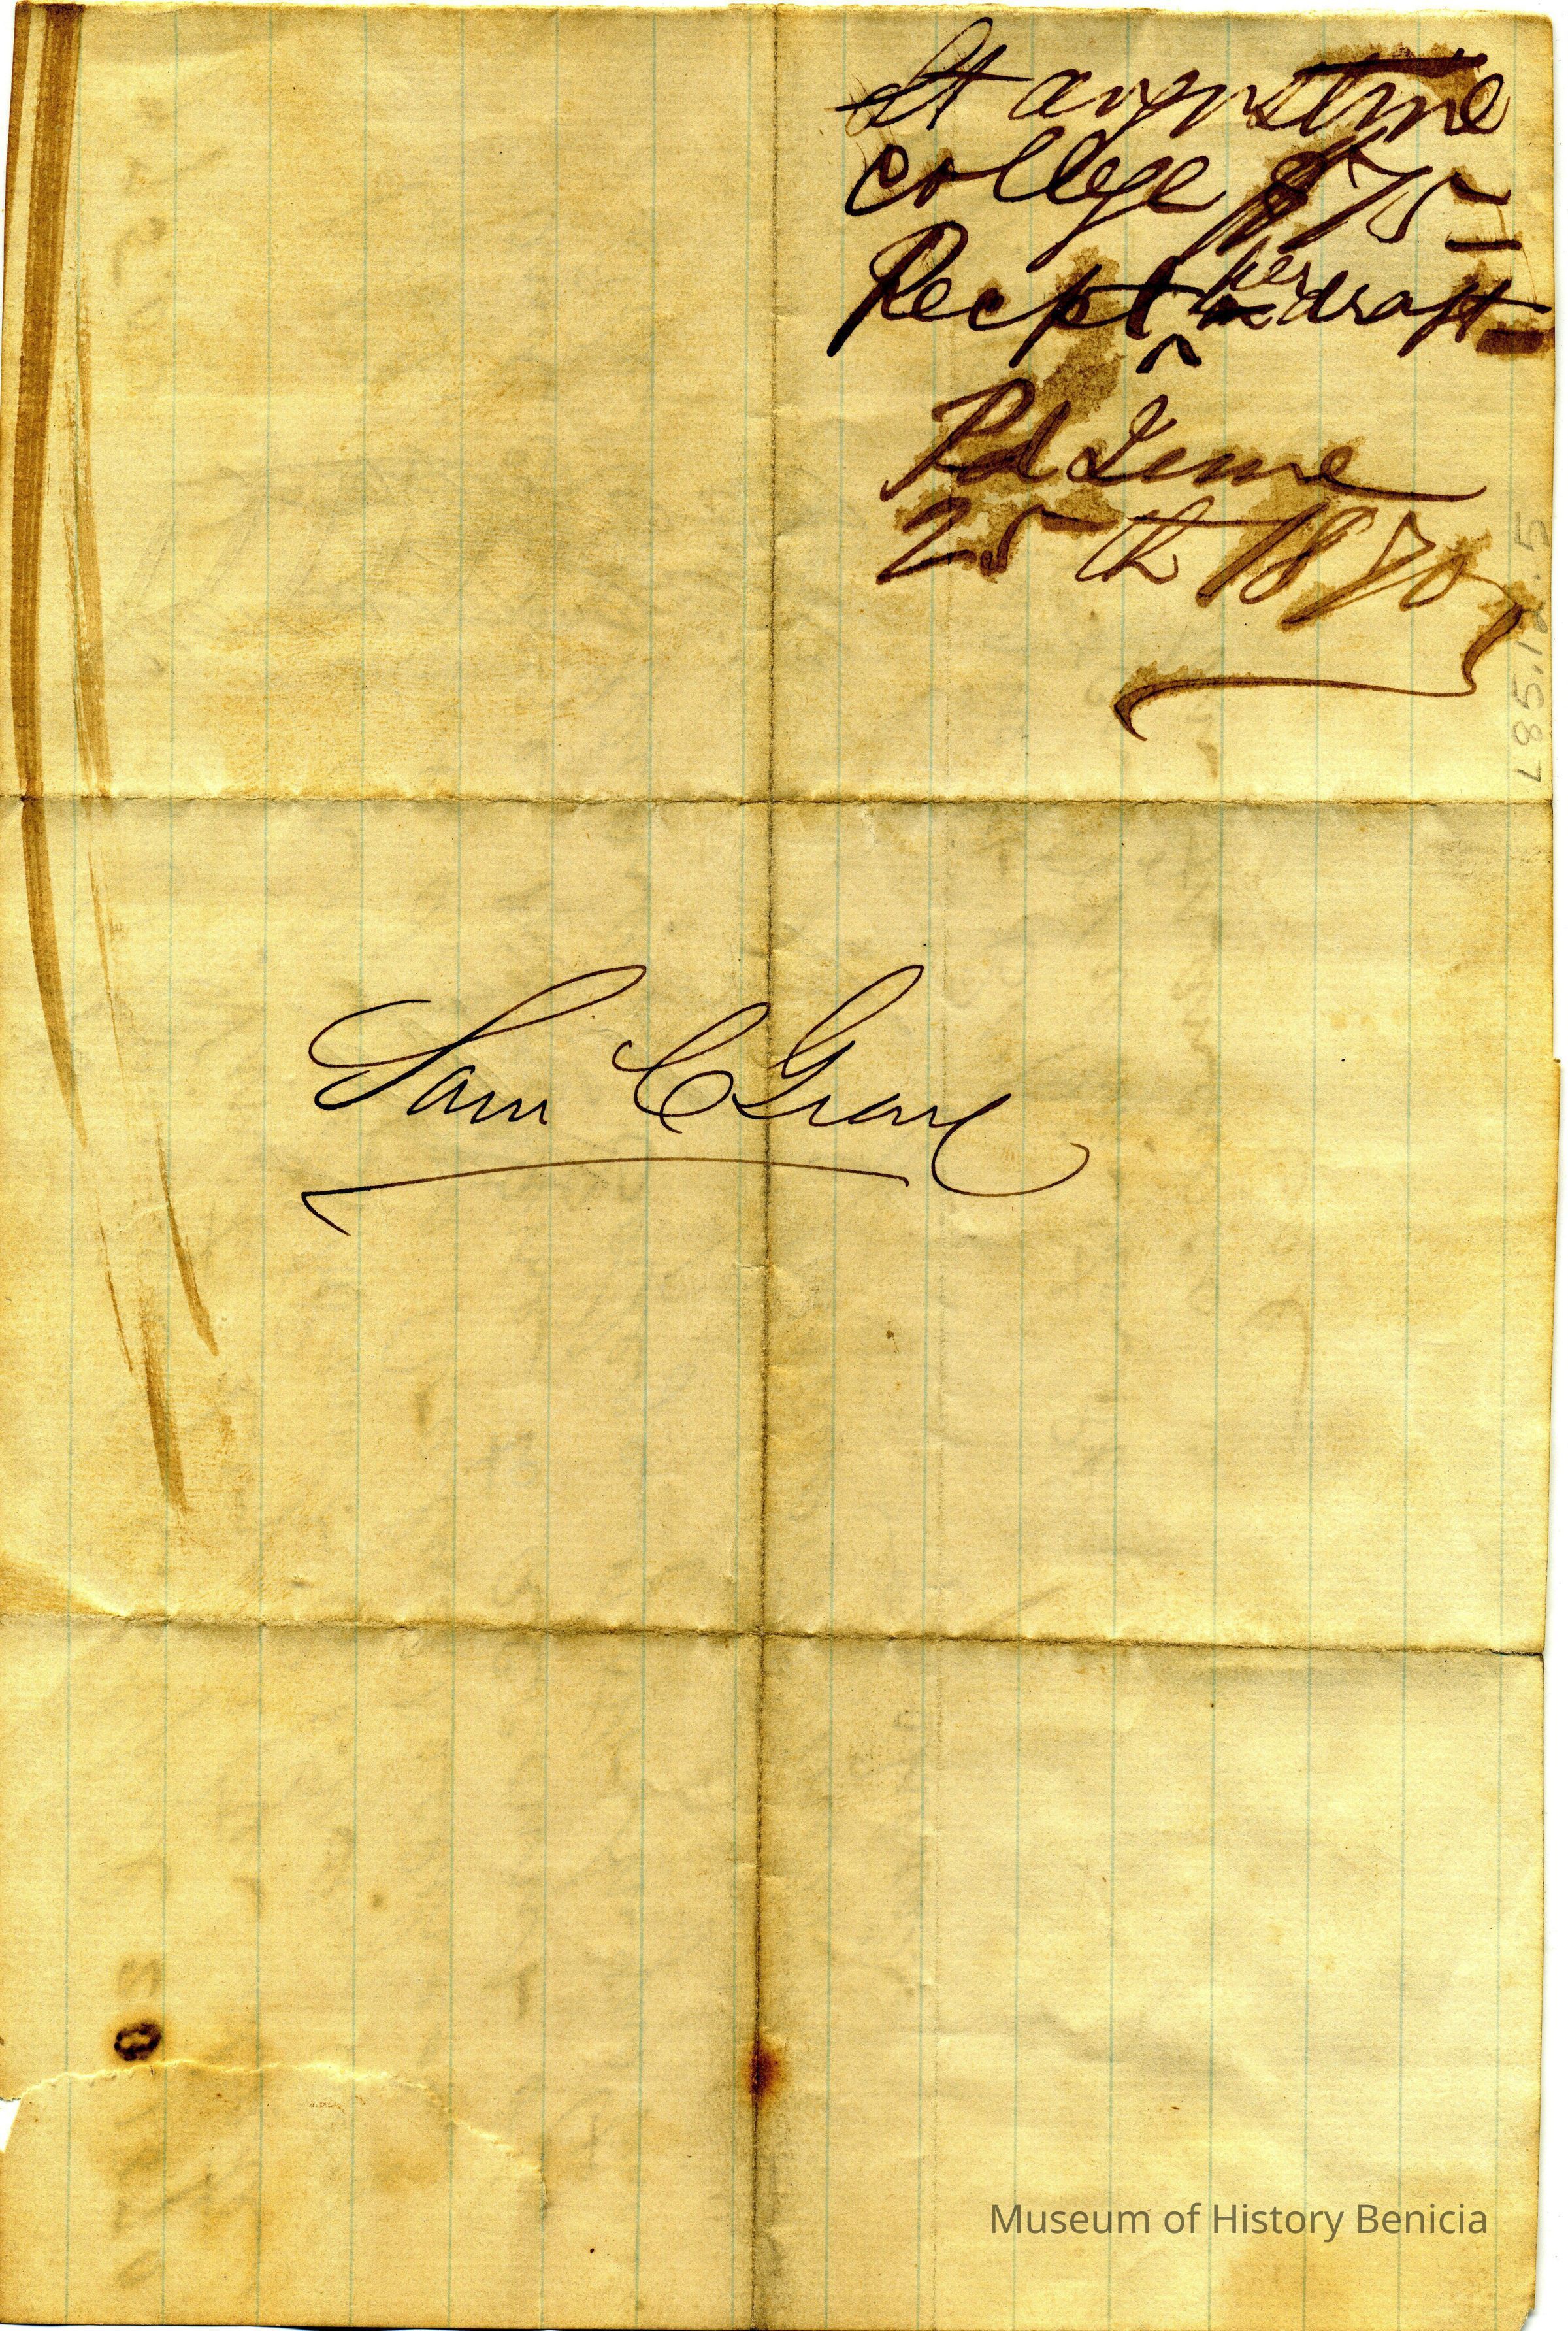 St augustine
college $75
Recpt per draft
Pd June
25th 1870
L85.12.5
Sam C Gray
Museum of History Benicia